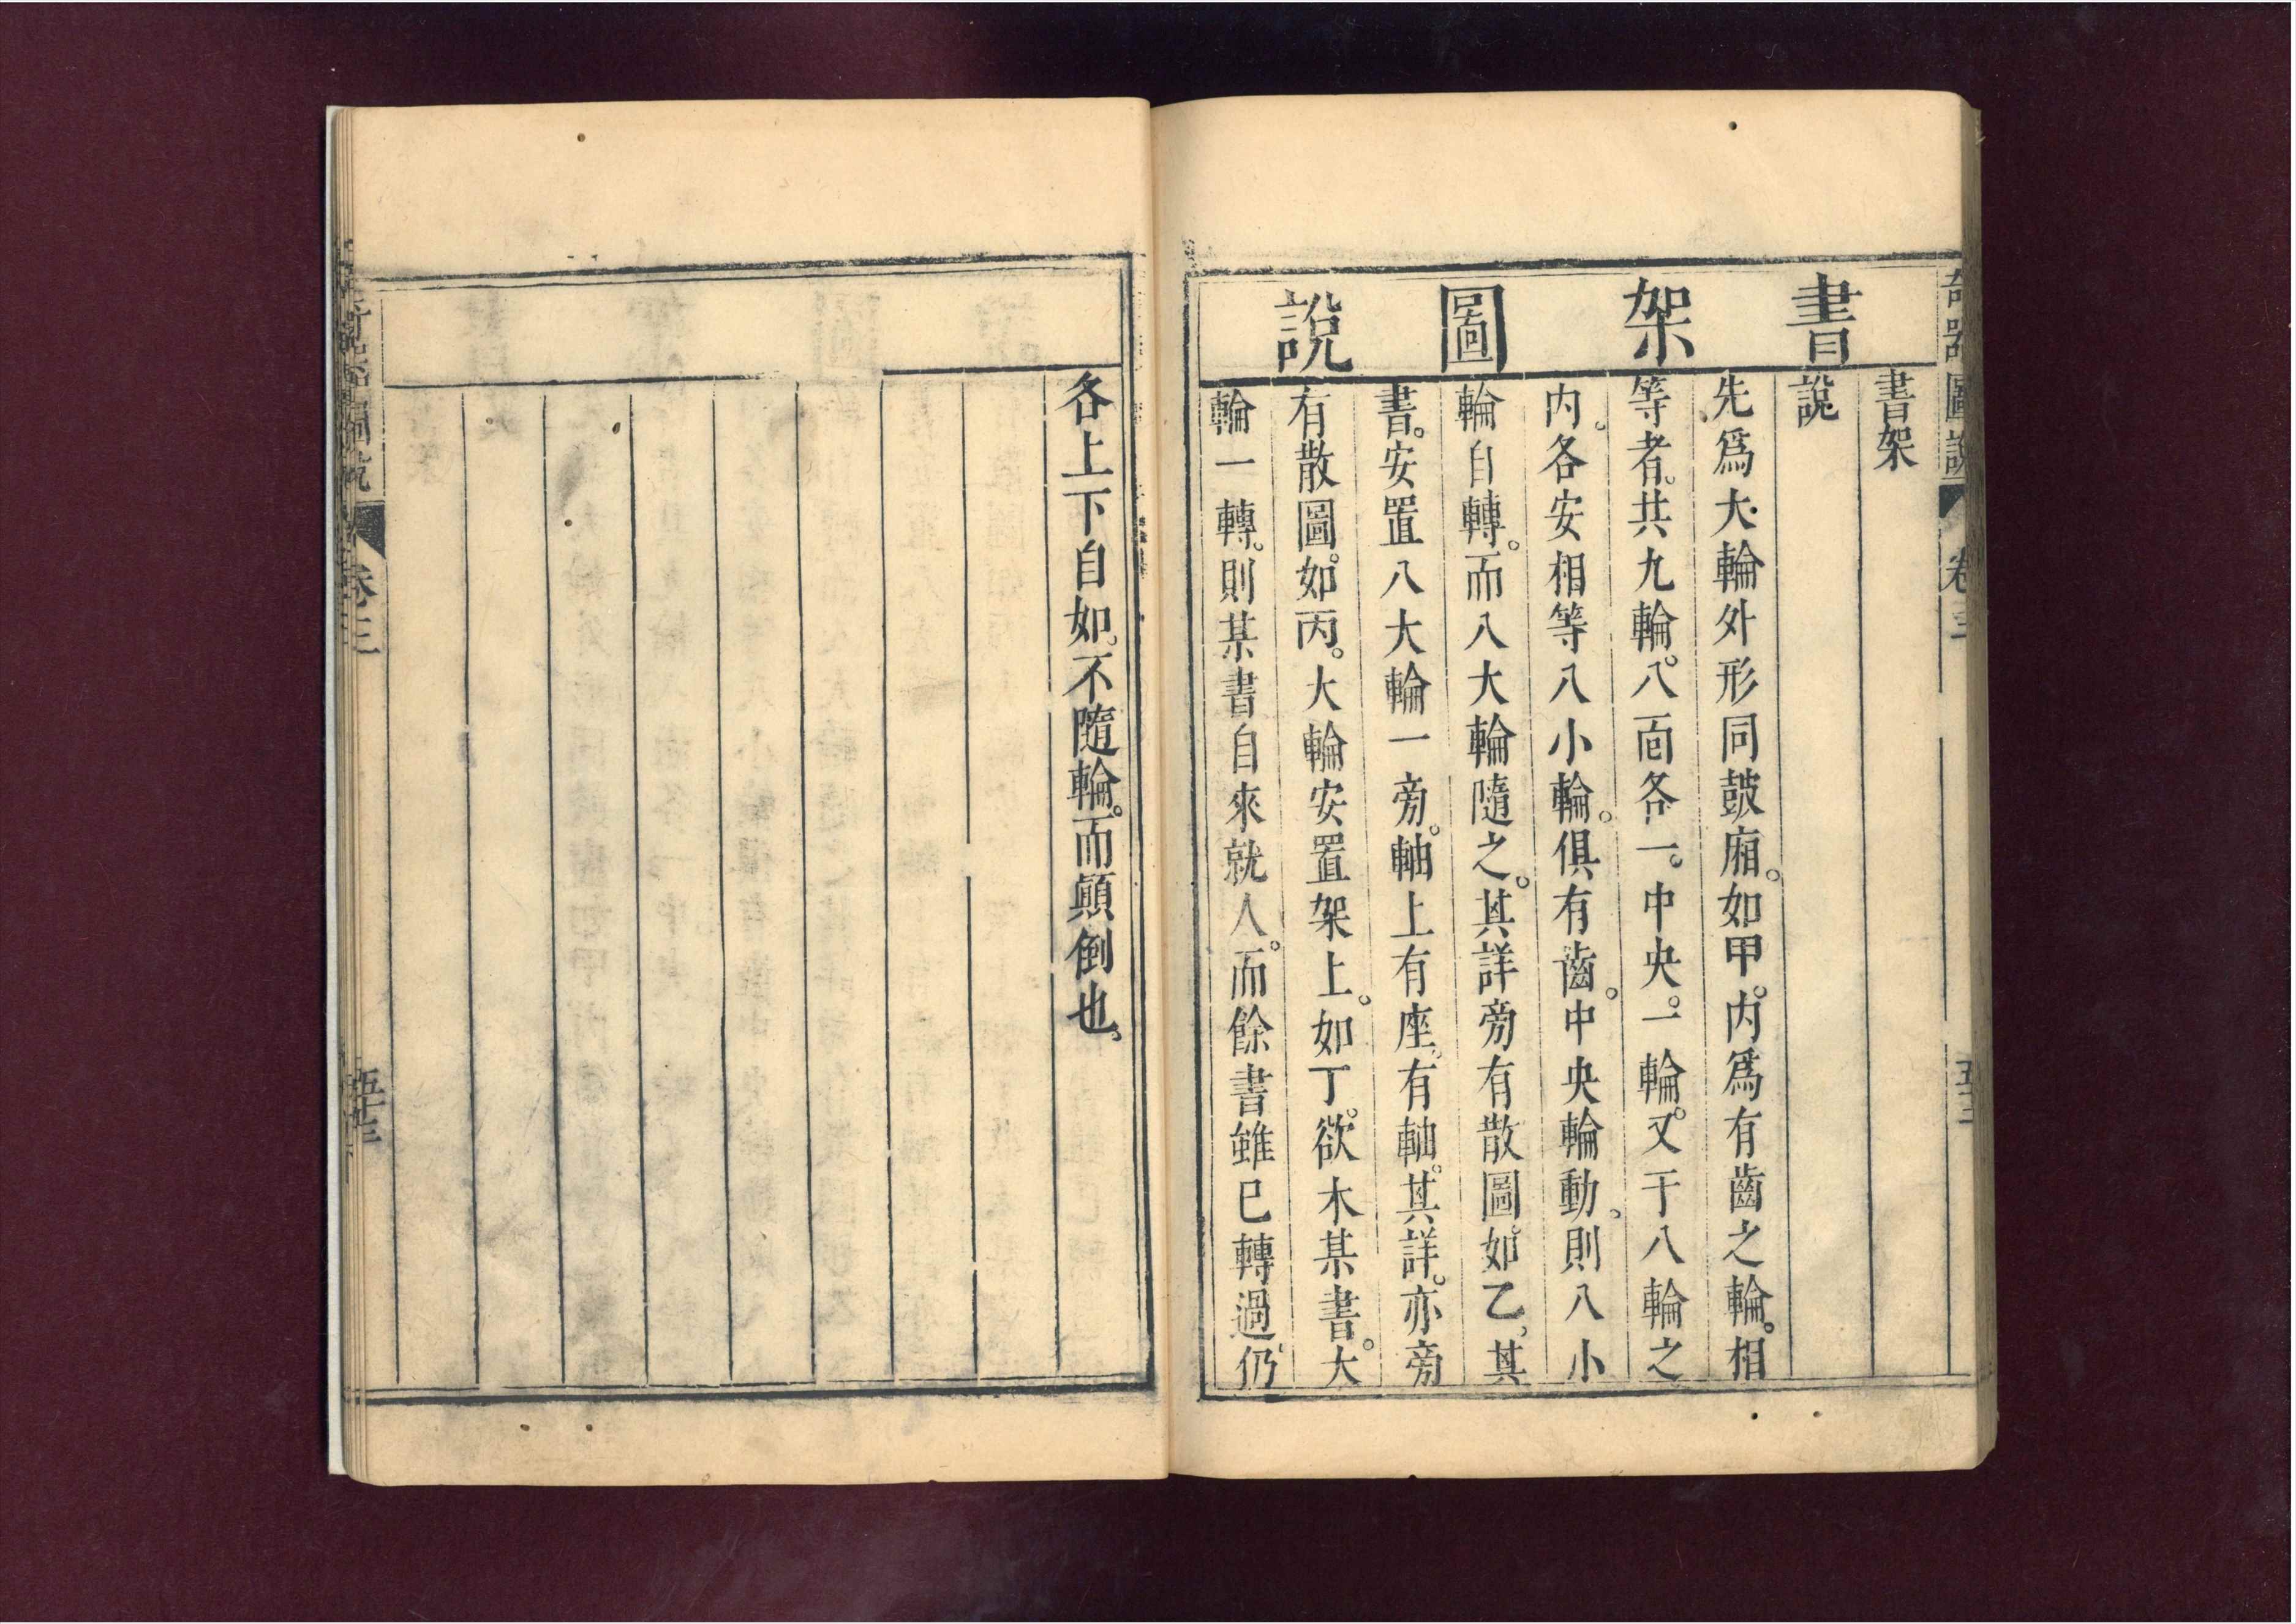 奇器圖說 卷三
書架圖說
書架
說
先爲大輪外形同鼓廂。如甲。內爲有齒之輪。相
等者。共九輪。八面各一。中央。一輪。又于八輪之
內。各安相等八小輪。俱有齒。中央輪動。則八小
輪自轉。而八大輪隨之。其詳旁有散圖。如乙。其
書。安置八大輪一旁。軸上有座。有軸。其詳。亦旁
有散圖。如丙。大輪安置架上。如丁。欲木某書。大
輪一轉。則某書自來就人。而餘書雖已轉過。仍
各上下自如。不隨輪。而顚倒也。
奇器圖說 卷三 五十三